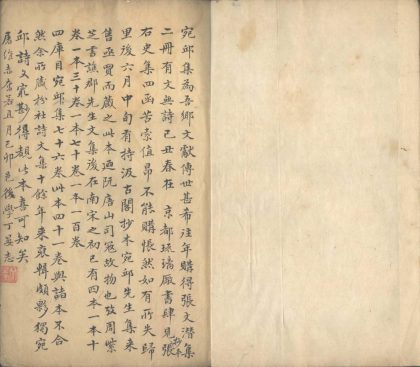 宛邱集為吾鄉文獻傳世甚希往年購得張文潛集
二冊有文無詩己丑春在 京都琉璃廠書肆見張
右史集四函苦索值昂不能購悵然如有所失歸
里後六月中旬有持汲古閣抄本宛邱先生集來
售亟買而藏之此本迺阮唐山司寇故物也攷周紫
芝書譙郡先生文集後在南宋之初已有四本一本十
卷一本三十卷一本七十卷一本一百卷
四庫目宛邱集七十六卷此本四十一卷與諸本不合
然余所藏枌社詩文集十餘年來裒輯頗夥獨宛
邱詩文寀尠得獲此本喜可知矣
屠維赤奮若且月己卯邑後學丁晏志